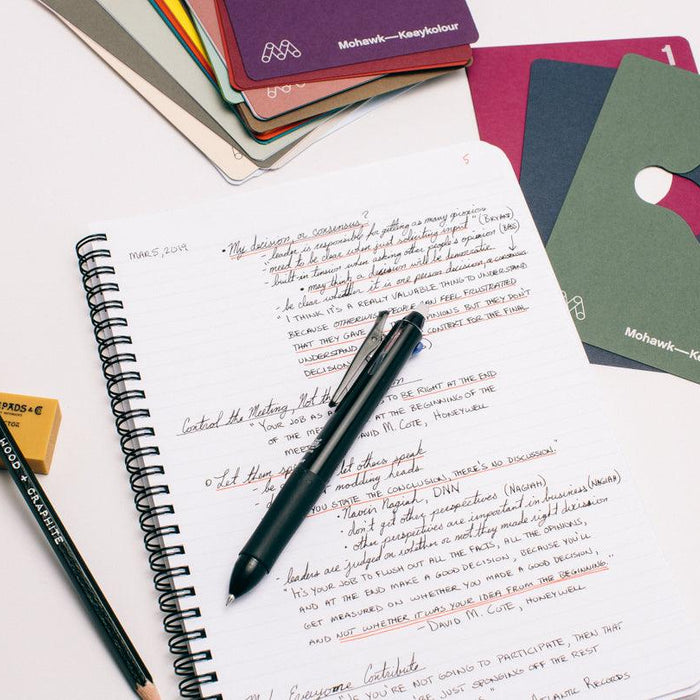 Mohawk—Keaykolour
1
5
MAR 5, 2019
• My decision, or consensus?
- leader is responsible for getting as many opinions
- need to be clear when just soliciting input" (Bryant)
built-in tension when asking other people's opinion (BAD)
• may think a decision will be democratic
- be clear whether it is one person decision, or consensus
"I THINK IT'S A REALLY VALUABLE THING TO UNDERSTAND
BECAUSE OTHERWISE PEOPLE CAN FEEL FRUSTRATED
THAT THEY GAVE OPINIONS BUT THEY DON'T
UNDERSTAND CONTEXT FOR THE FINAL
DECISION
Mohawk—Ke
Control the Meeting, Not the
"YOUR JOB AS TO BE RIGHT AT THE END
OF THE ME AT THE BEGINNING OF THE
MEET DAVID M. COTE, HONEYWELL
Let them sp let others speak
- be nodding heads
YOU STATE THE CONCLUSION, THERE'S NO DISCUSSION."
• Navin Nagiah, DNN
- don't get other perspectives (NAGIAH)
• other perspectives are important in business (NAGIAH)
- leaders are judged on whether or not they made right decision
"IT'S YOUR JOB TO FLUSH OUT ALL THE FACTS, ALL THE OPINIONS,
AND AT THE END MAKE A GOOD DECISION, BECAUSE YOU'LL
GET MEASURED ON WHETHER YOU MADE A GOOD DECISION,
AND NOT WHETHER IT WAS YOUR IDEA FROM THE BEGINNING."
- DAVID M. COTE, HONEYWELL
Everyone Contribute
"IF YOU'RE NOT GOING TO PARTICIPATE, THEN THAT
YOU'RE JUST SPONGING OFF THE REST
RECORDS
PADS & C
WOOD + GRAPHITE